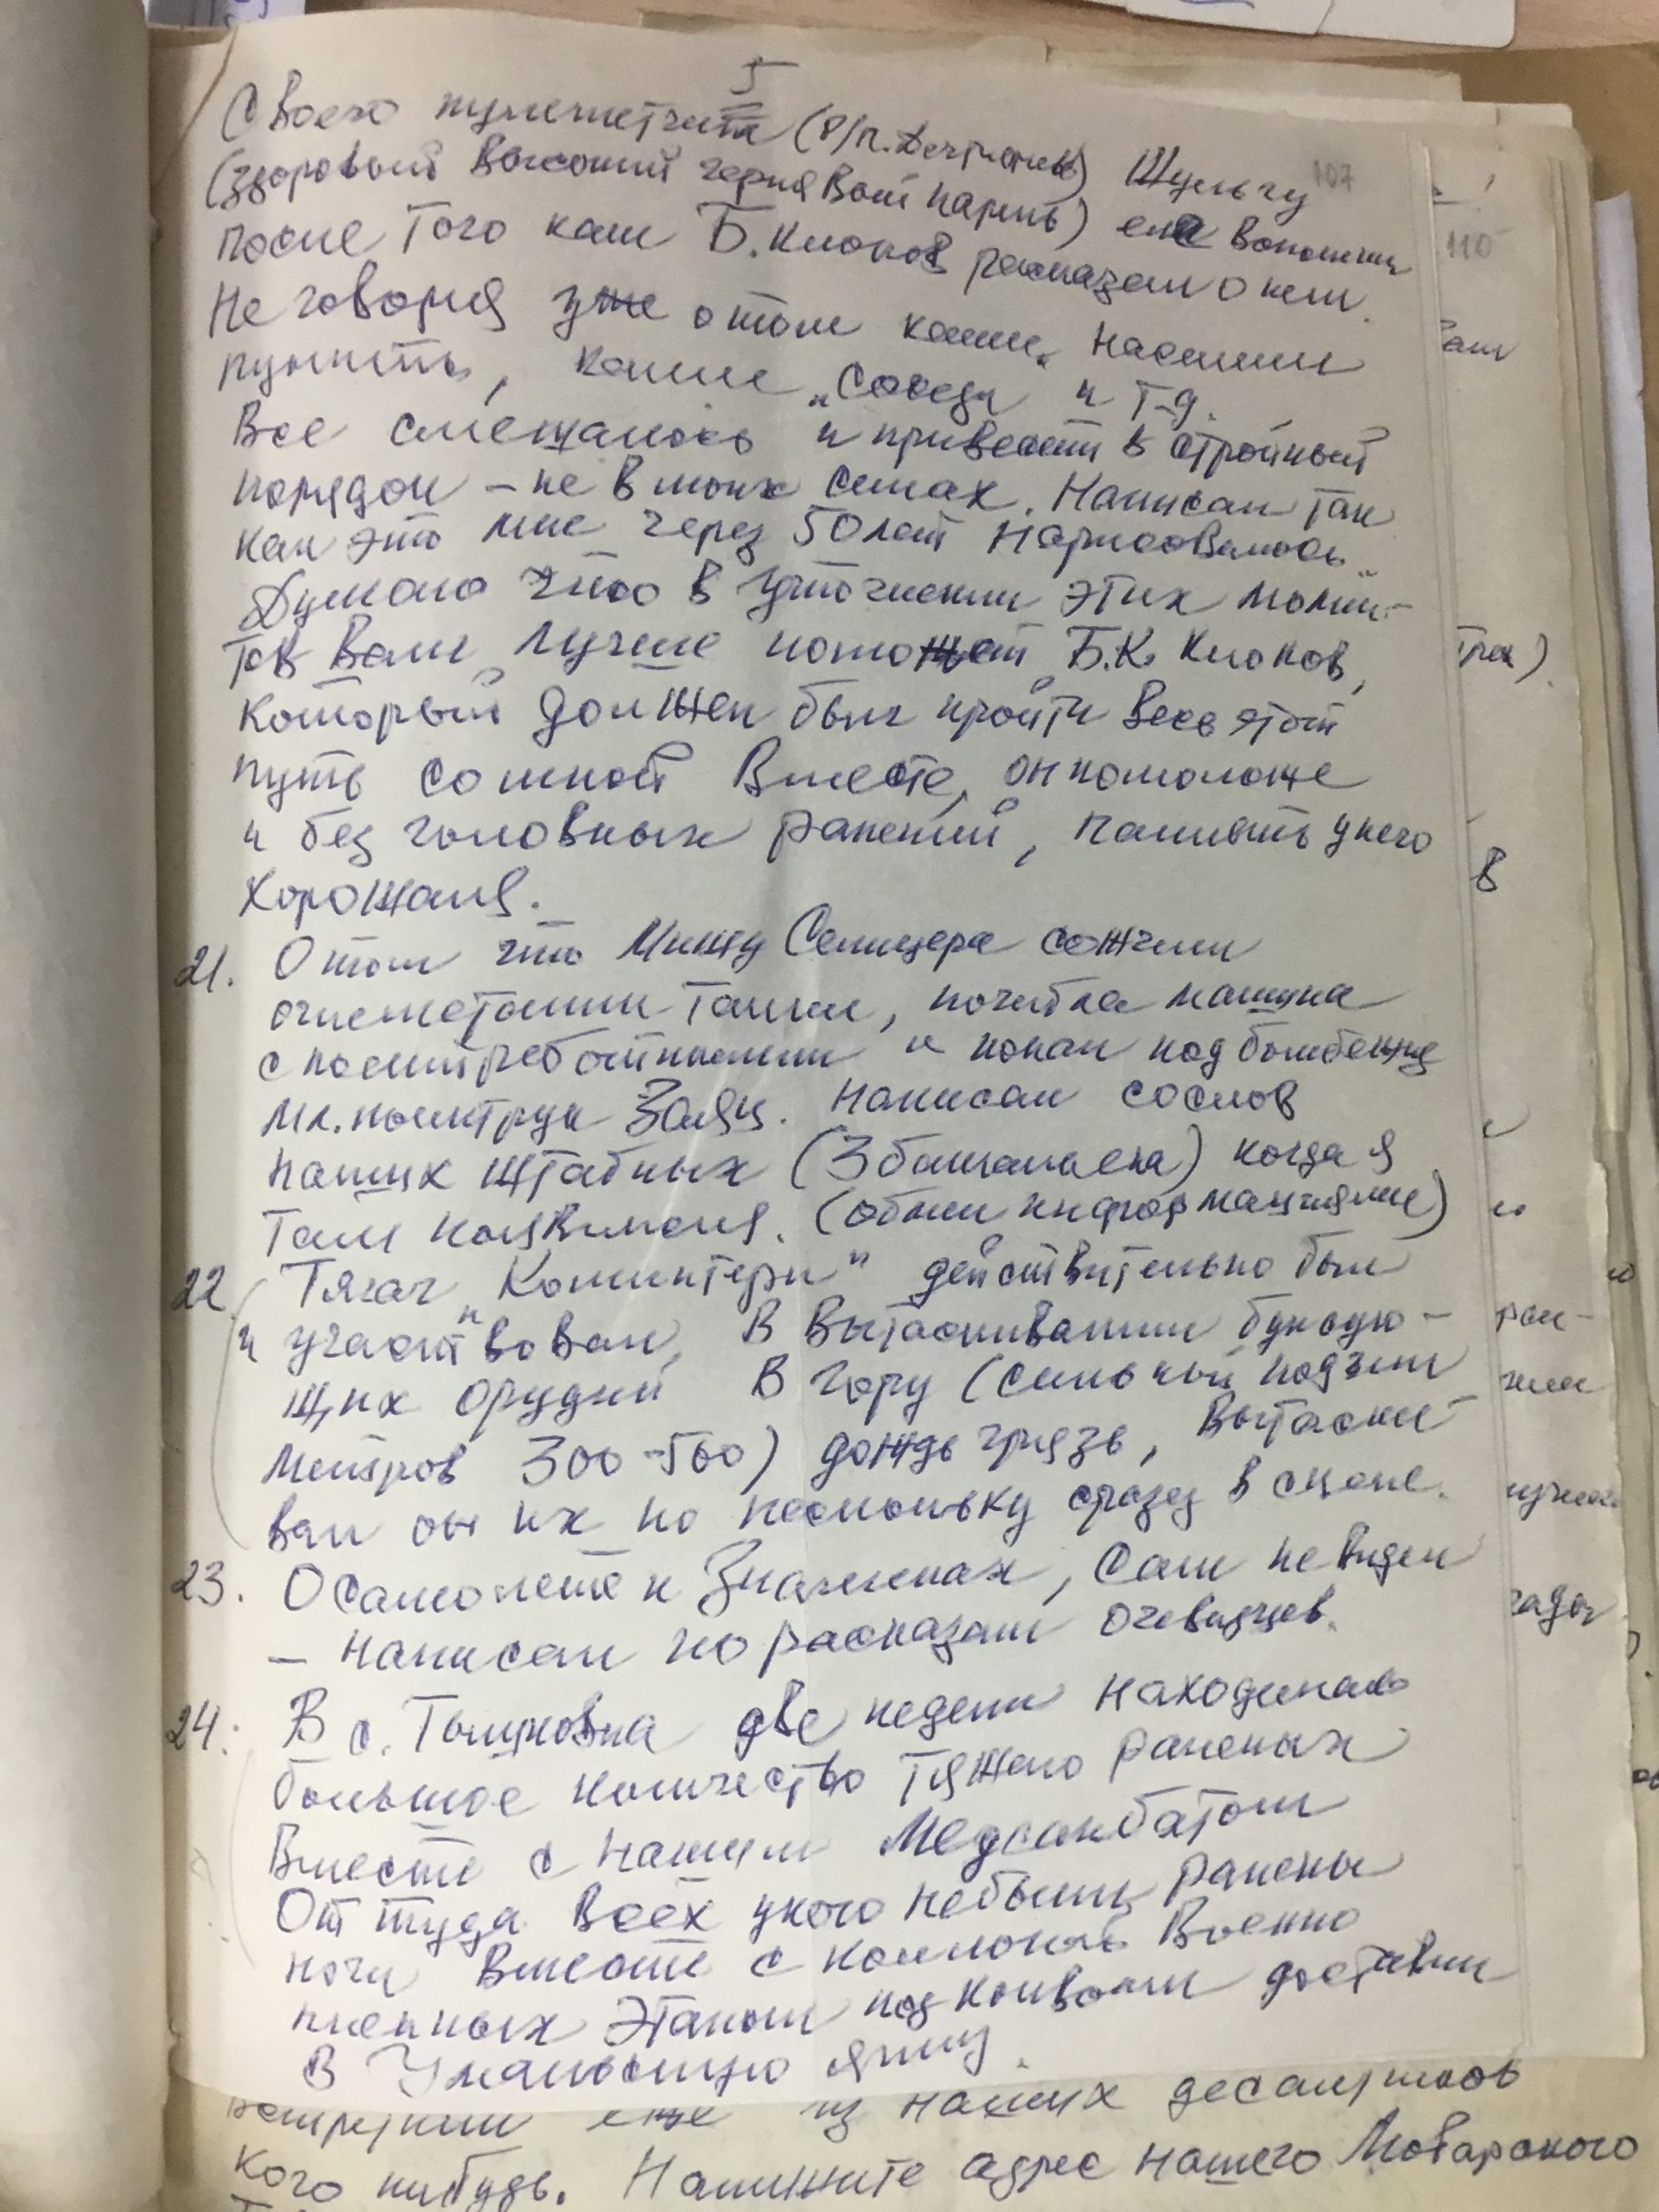 5
107
Своего пулеметчика (р/п. Дегтярев) Шульгу
(здоровый высокий чернявый парень) еле вспомнил
после того как Б. Клюков рассказал о нем.
Не говоря уже о том какие населен
пункты, какие "соседи" и т.д.
Все смешалось и привести в стройный
порядок – не в моих силах. Написал так
как это мне через 50 лет нарисовалось.
Думаю что в уточнении этих момен-
тов Вам лучше поможет Б.К. Клюков,
который должен был пройти весь этот
путь со мной вместе, он помоложе
и без головных ранений, память у него
хорошая.
21. О том что Мишу Селицера сожгли
огнеметами танки, погибла машина
с политработниками и попал под бомбежку
мл. политрук Заяц. Написал со слов
наших штабных (3 батальона) когда я
там появился. (обмен информациями)
22. Тягач "Коминтерн" действительно был
и участвовал, в вытаскивании буксую-
щих орудий в гору (сильный подъем
метров 300-500) дождь грязь, вытаски-
вал он их по нескольку сразу в сцепе.
23. О самолете и Знаменах, сам не видел
– написал по рассказам очевидцев.
24. В с. Тышковка две недели находилось
большое количество тяжело раненых
вместе с нашим Медсанбатом
От туда всех у кого не были ранены
ноги вместе с колонной военно
пленных этапом под конвоем доставили
в Уманьскую яму.
встретили еще из наших десантников
кого нибудь. Напишите адрес нашего
110
в